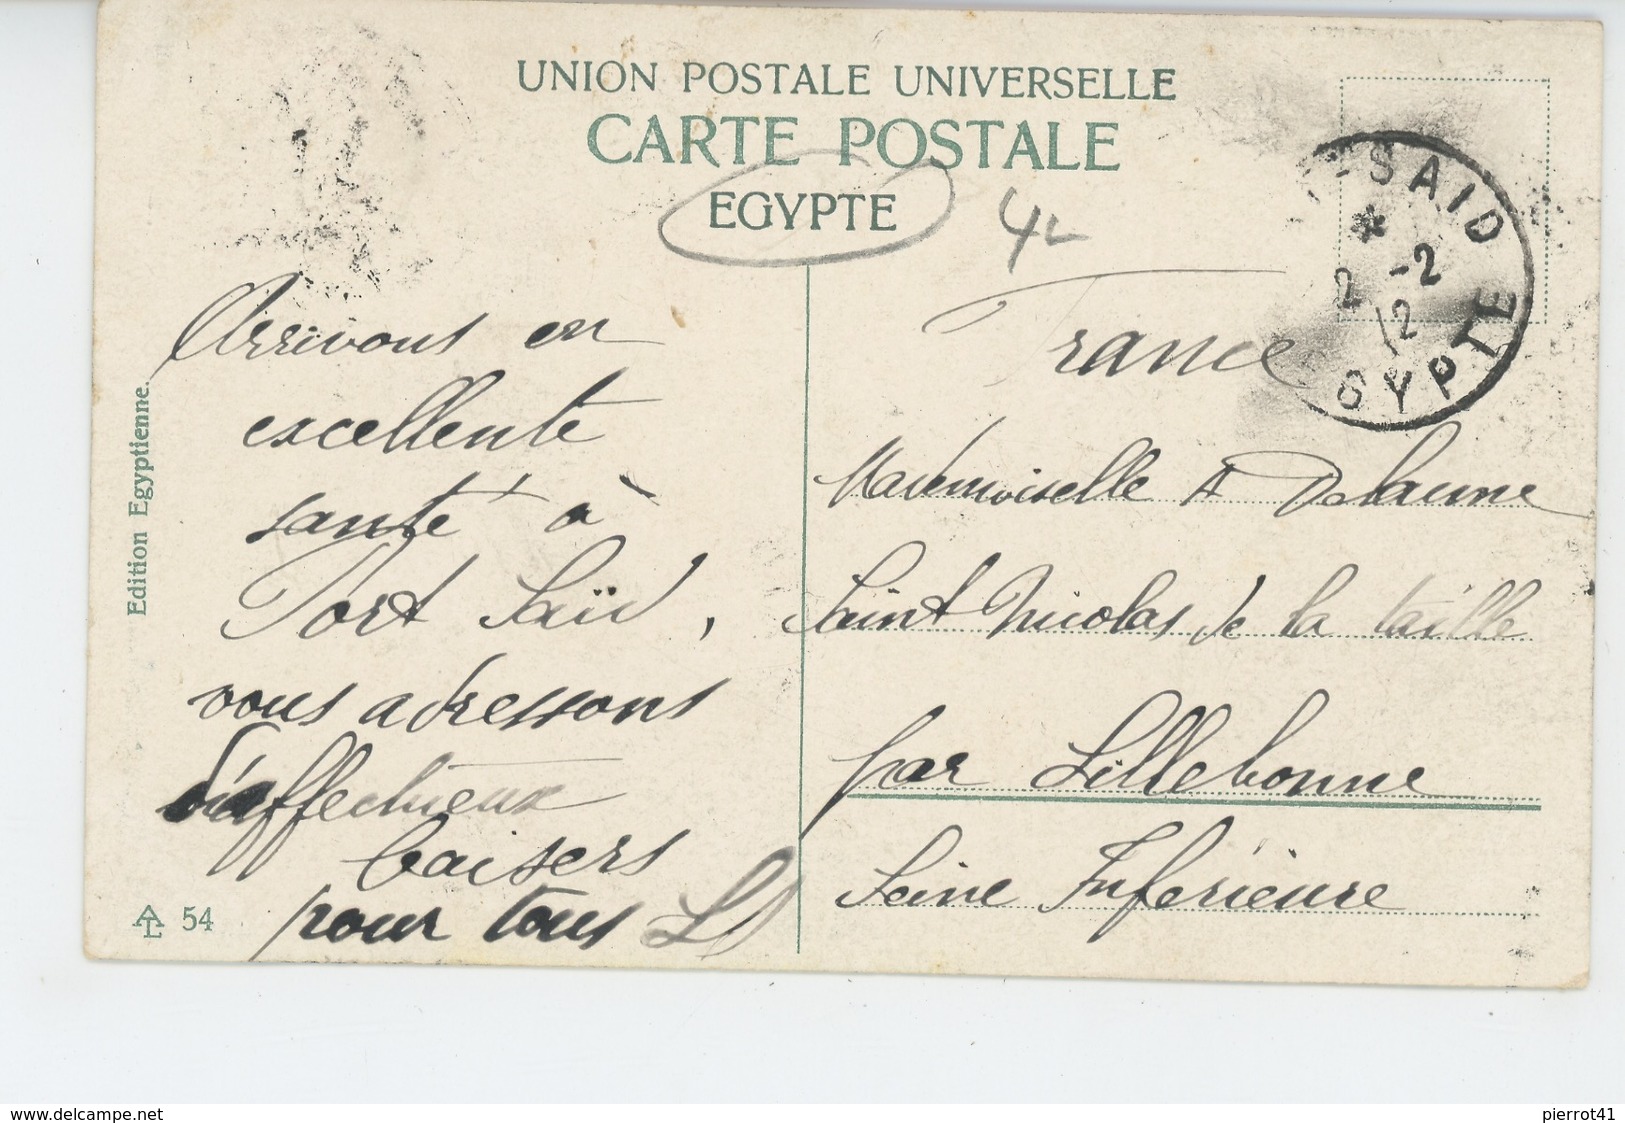 UNION POSTALE UNIVERSELLE
CARTE POSTALE
EGYPTE
-SAID
2 -2
12
GYPTE
Edition Egyptienne.
Arrivons en
excellente
santé à
Port Saïd,
vous adressons
d'affectueux
baisers
pour tous
54
France
Mademoiselle A Delaune
Saint Nicolas de la taille
par Lillebonne
Seine Inférieure
www.delcampe.net
pierrot41